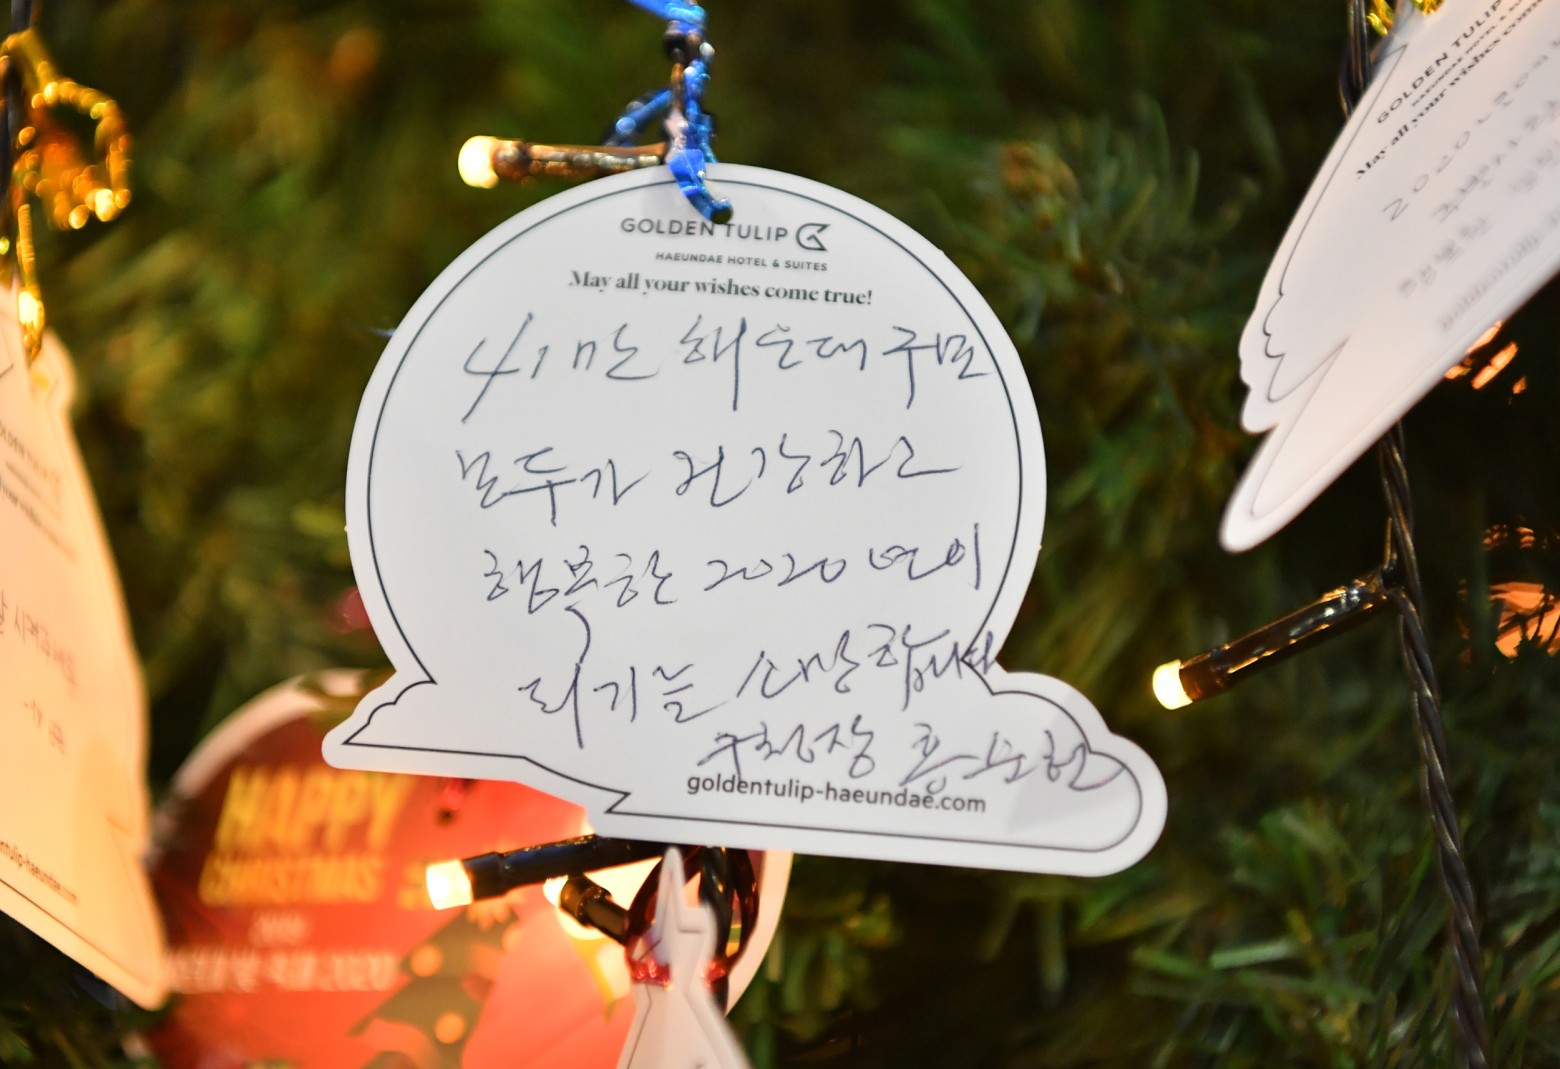 GOLDEN TULIP
HAEUNDAE HOTEL & SUITES
May all your wishes come true!
41만 해운대구민
모두가 건강하고
행복한 2020년이
되기를 소망합니다
구청장 홍순헌
goldentulip-haeundae.com
GOLDEN TULIP
May all your wishes come
2020
HAPPY
CHRISTMAS
2020